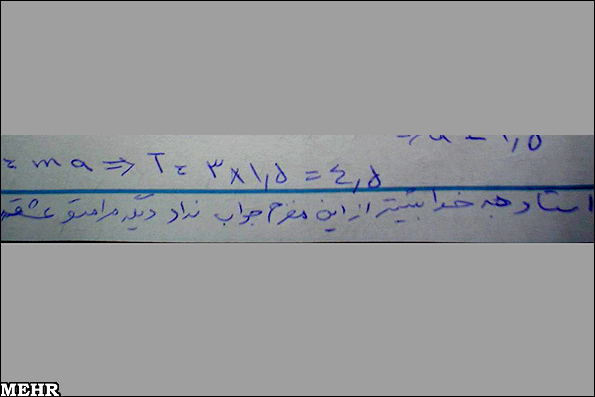 ⇒ a = ۱٫۵
= ma ⇒ T = ۳×۱٫۵ = ۴٫۵
استاد به خدا بیشتر از این مغزم جواب نداد دیگه مرامتو عشقه
MEHR